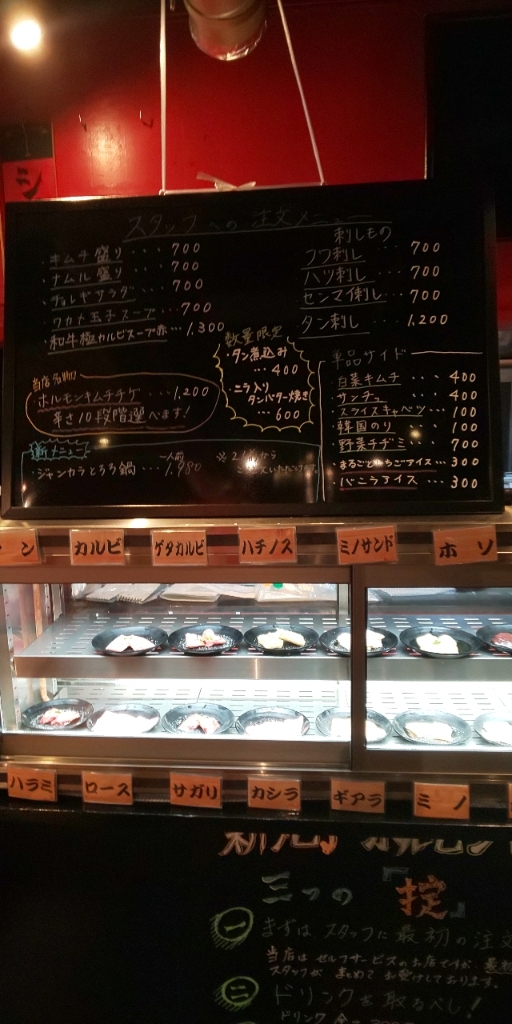 スタッフへの注文メニュー
・キムチ盛り・・・700
・ナムル盛り・・・700
・チョレギサラダ・・・700
・ワカメ玉子スープ・・・700
・和牛極カルビスープ赤・・・1,300
刺しもの
フワ刺し・・・700
ハツ刺し・・・700
センマイ刺し・・・700
タン刺し・・・1,200
数量限定
・タン煮込み
・・・400
・ニラ入り
タンバター焼き
・・・600
当店名物!!
ホルモンキムチチゲ・・・1,200
辛さ10段階選べます!
新メニュー
・ジャンカラとろろ鍋・・・一人前1,980
※2人前から
単品サイド
白菜キムチ・・・400
サンチュ・・・400
スライスキャベツ・・・100
韓国のり・・・100
野菜チヂミ・・・700
まるごといちごアイス・・・300
バニラアイス・・・300
ン
カルビ
ゲタカルビ
ハチノス
ミノサンド
ホソ
ハラミ
ロース
サガリ
カシラ
ギアラ
ミノ
三つの『掟』
一 まずはスタッフに最初の注文
当店はセルフサービスのお店ですが、最初
スタッフがまとめてお受けしております。
二 ドリンクを取るべし!
ドリンク